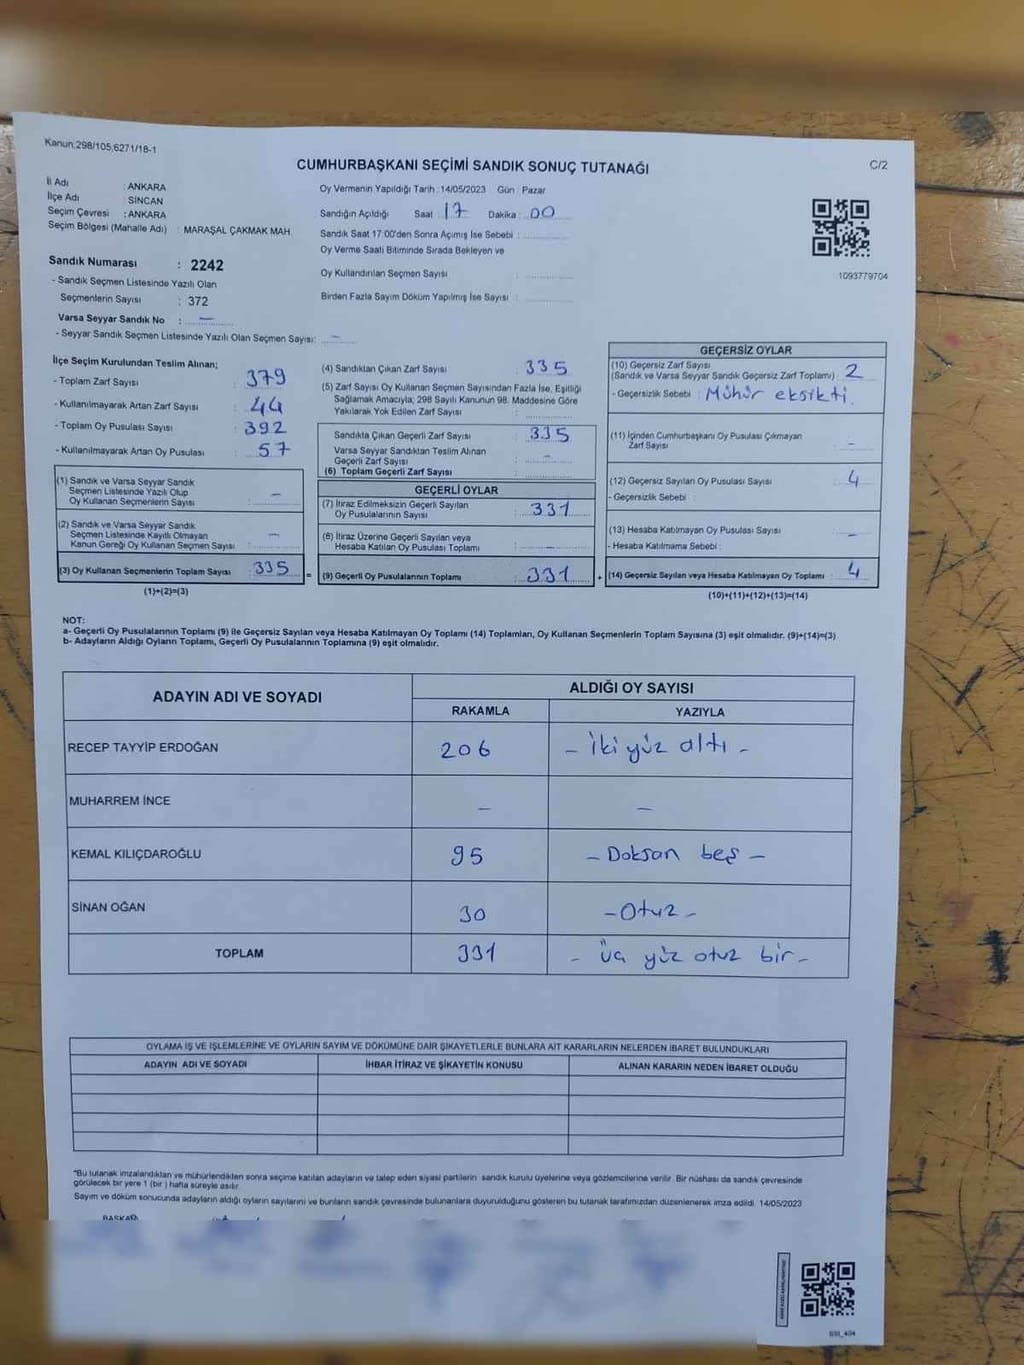 Kanun;298/105,6271/18-1
CUMHURBAŞKANI SEÇİMİ SANDIK SONUÇ TUTANAĞI
C/2
İl Adı : ANKARA
İlçe Adı : SİNCAN
Seçim Çevresi : ANKARA
Seçim Bölgesi (Mahalle Adı) : MARAŞAL ÇAKMAK MAH.
Oy Vermenin Yapıldığı Tarih : 14/05/2023 Gün : Pazar
Sandığın Açıldığı Saat 17 Dakika : 00
Sandık Saat 17:00'den Sonra Açımış İse Sebebi :
Oy Verme Saati Bitiminde Sırada Bekleyen ve
Oy Kullandırılan Seçmen Sayısı :
Birden Fazla Sayım Döküm Yapılmış İse Sayısı :
1093779704
Sandık Numarası : 2242
- Sandık Seçmen Listesinde Yazılı Olan
Seçmenlerin Sayısı : 372
Varsa Seyyar Sandık No : —
- Seyyar Sandık Seçmen Listesinde Yazılı Olan Seçmen Sayısı: —
İlçe Seçim Kurulundan Teslim Alınan;
- Toplam Zarf Sayısı : 379
- Kullanılmayarak Artan Zarf Sayısı : 44
- Toplam Oy Pusulası Sayısı : 392
- Kullanılmayarak Artan Oy Pusulası : 57
(1) Sandık ve Varsa Seyyar Sandık
Seçmen Listesinde Yazılı Olup
Oy Kullanan Seçmenlerin Sayısı : —
(2) Sandık ve Varsa Seyyar Sandık
Seçmen Listesinde Kayıtlı Olmayan
Kanun Gereği Oy Kullanan Seçmen Sayısı : —
(3) Oy Kullanan Seçmenlerin Toplam Sayısı : 335
(1)+(2)=(3)
(4) Sandıktan Çıkan Zarf Sayısı : 335
(5) Zarf Sayısı Oy Kullanan Seçmen Sayısından Fazla İse, Eşitliği
Sağlamak Amacıyla; 298 Sayılı Kanunun 98. Maddesine Göre
Yakılarak Yok Edilen Zarf Sayısı :
Sandıkta Çıkan Geçerli Zarf Sayısı : 335
Varsa Seyyar Sandıktan Teslim Alınan
Geçerli Zarf Sayısı : —
(6) Toplam Geçerli Zarf Sayısı :
GEÇERLİ OYLAR
(7) İtiraz Edilmeksizin Geçerli Sayılan
Oy Pusulalarının Sayısı : 331
(8) İtiraz Üzerine Geçerli Sayılan veya
Hesaba Katılan Oy Pusulası Toplamı : —
= (9) Geçerli Oy Pusulalarının Toplamı : 331 +
GEÇERSİZ OYLAR
(10) Geçersiz Zarf Sayısı
(Sandık ve Varsa Seyyar Sandık Geçersiz Zarf Toplamı) : 2
- Geçersizlik Sebebi : Mühür eksikti.
(11) İçinden Cumhurbaşkanı Oy Pusulası Çıkmayan
Zarf Sayısı : —
(12) Geçersiz Sayılan Oy Pusulası Sayısı : 4
- Geçersizlik Sebebi :
(13) Hesaba Katılmayan Oy Pusulası Sayısı : —
- Hesaba Katılmama Sebebi :
(14) Geçersiz Sayılan veya Hesaba Katılmayan Oy Toplamı : 4
(10)+(11)+(12)+(13)=(14)
NOT:
a- Geçerli Oy Pusulalarının Toplamı (9) ile Geçersiz Sayılan veya Hesaba Katılmayan Oy Toplamı (14) Toplamları, Oy Kullanan Seçmenlerin Toplam Sayısına (3) eşit olmalıdır. (9)+(14)=(3)
b- Adayların Aldığı Oyların Toplamı, Geçerli Oy Pusulalarının Toplamına (9) eşit olmalıdır.
ADAYIN ADI VE SOYADI
ALDIĞI OY SAYISI
RAKAMLA YAZIYLA
RECEP TAYYİP ERDOĞAN 206 - iki yüz altı -
MUHARREM İNCE — —
KEMAL KILIÇDAROĞLU 95 - Doksan beş -
SİNAN OĞAN 30 - Otuz -
TOPLAM 331 - üç yüz otuz bir -
OYLAMA İŞ VE İŞLEMLERİNE VE OYLARIN SAYIM VE DÖKÜMÜNE DAİR ŞİKAYETLERLE BUNLARA AİT KARARLARIN NELERDEN İBARET BULUNDUKLARI
ADAYIN ADI VE SOYADI İHBAR İTİRAZ VE ŞİKAYETİN KONUSU ALINAN KARARIN NEDEN İBARET OLDUĞU
*Bu tutanak imzalandıktan ve mühürlendikten sonra seçime katılan adayların ve talep eden siyasi partilerin sandık kurulu üyelerine veya gözlemcilerine verilir. Bir nüshası da sandık çevresinde
görülecek bir yere 1 (bir) hafta süreyle asılır.
Sayım ve döküm sonucunda adayların aldığı oyların sayılarını ve bunların sandık çevresinde bulunanlara duyurulduğunu gösteren bu tutanak tarafımızdan düzenlenerek imza edildi. 14/05/2023
BAŞKAN